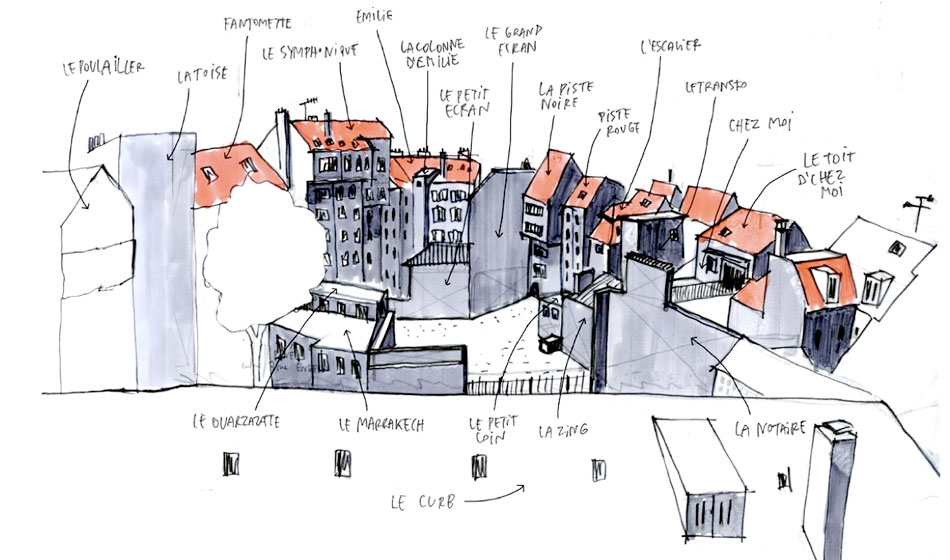 LE POULAILLER
LA TOISE
FANTOMETTE
LE SYMPHONIQUE
EMILIE
LA COLONNE
D'EMILIE
LE PETIT
ECRAN
LE GRAND
ECRAN
LA PISTE
NOIRE
PISTE
ROUGE
L'ESCALIER
LE TRANSFO
CHEZ MOI
LE TOIT
D'CHEZ
MOI
LE OUARZAZATE
LE MARRAKECH
LE PETIT
COIN
LA ZING
LA NOTAIRE
LE CURB